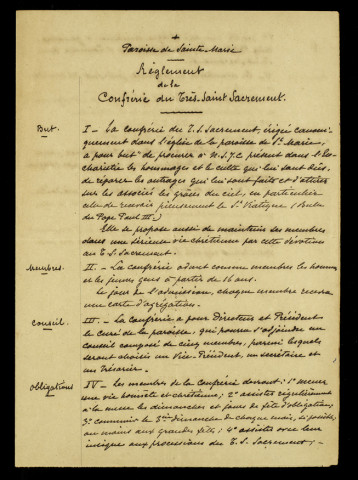 +
Paroisse de Sainte Marie
Règlement
de la
Confrérie du Très Saint Sacrement.
But. I — La confrérie du T. S. Sacrement, érigée canoni-
quement dans l'église de la paroisse de Ste Marie,
a pour but de procurer à N. S. J. C. présent dans l'Eu-
charistie les hommages et le culte qui lui sont dûs,
de réparer les outrages qui lui sont faits et d'attirer
sur les associés les grâces du ciel, en particulier
celle de recevoir pieusement le St Viatique (Bulle
du Pape Paul III.)
Elle se propose aussi de maintenir ses membres
dans une sérieuse vie chrétienne par cette dévotion
au T. S. Sacrement.
Membres. II — La confrérie admet comme membres les hommes
et les jeunes gens à partir de 16 ans.
Le jour de l'admission, chaque membre recevra
une carte d'agrégation.
Conseil. III — La confrérie a pour Directeur et Président
le curé de la paroisse, qui pourra s'adjoindre un
conseil composé de cinq membres, parmi lesquels
seront choisis un Vice-Président, un secrétaire et
un trésorier.
Obligations IV — Les membres de la confrérie devront : 1° mener
une vie honnête et chrétienne; 2° assister régulièrement
à la messe les dimanches et jours de fête d'obligation;
3° communier le dimanche de chaque mois, si possible,
ou moins aux grandes fêtes; 4° assister avec leur
insigne aux processions du T. S. Sacrement; —